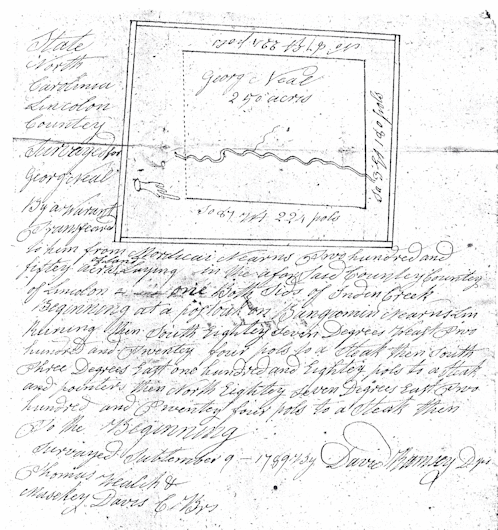 State
North
Carolinia
Lincolon
Countey
Survayed for
George Neal
By a Warant
Transfeared
to him from Mordicai Mearns Two hundred and
fiftey acres Land Laying in the afore Said Countey Countey
of Lincolon & on Both Sides of Indin Creek
Beginning at a post oak on Mearns Lin
Runing thin South Eightey Seven Degrees West Two
hundred and Twentey four pols to a Steak then South
Three Degrees East one hundred and Eightey pols to a Steak
and pointers then North Eightey Seven Degrees East Two
hundred and Twentey four pols to a Steak then
To the Beginning
Survayed Subtember 9 - 1789 By David Ramsey
Thomas Wealch &
Davis C Brs
No 87 Et 224 pols
George Neal
250 acris
So 3 Et 180 pols
So 87 Wt 224 pols